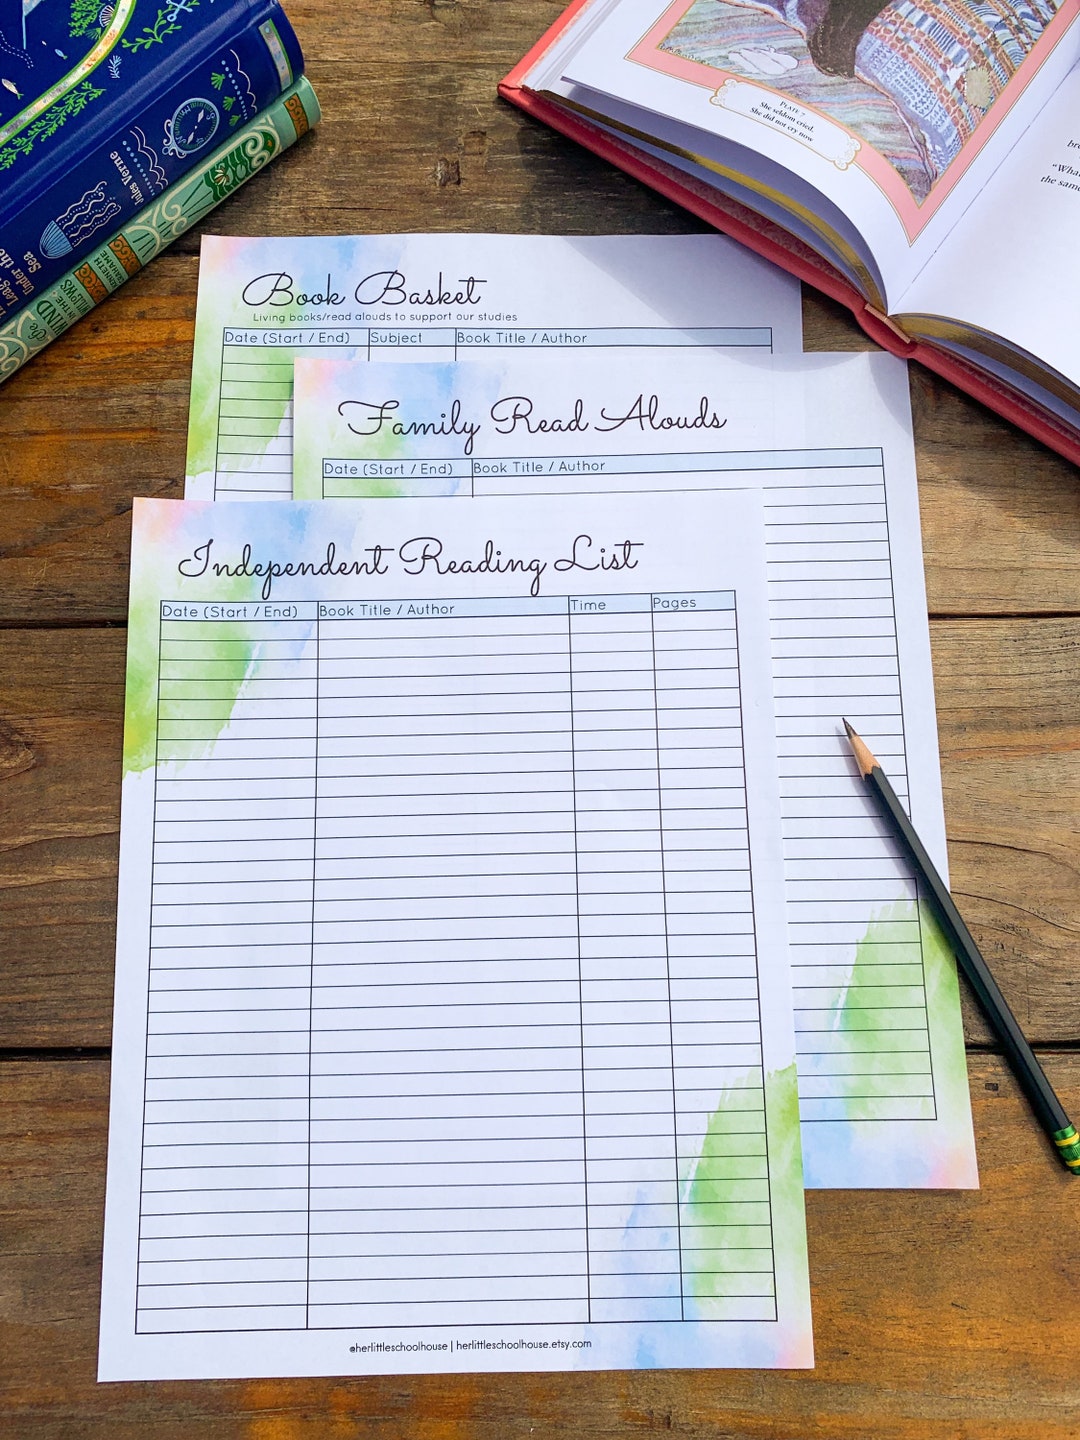 Jules Verne
Sea
Under the
Leag
KENNETH
GRAHAME
The
WIND
IN THE
WILLOWS
PLATE 7
She seldom cried.
She did not cry now
bre
"What
the same
Book Basket
Living books/read alouds to support our studies
Date (Start / End) Subject Book Title / Author
Family Read Alouds
Date (Start / End) Book Title / Author
Independent Reading List
Date (Start / End) Book Title / Author Time Pages
@herlittleschoolhouse | herlittleschoolhouse.etsy.com